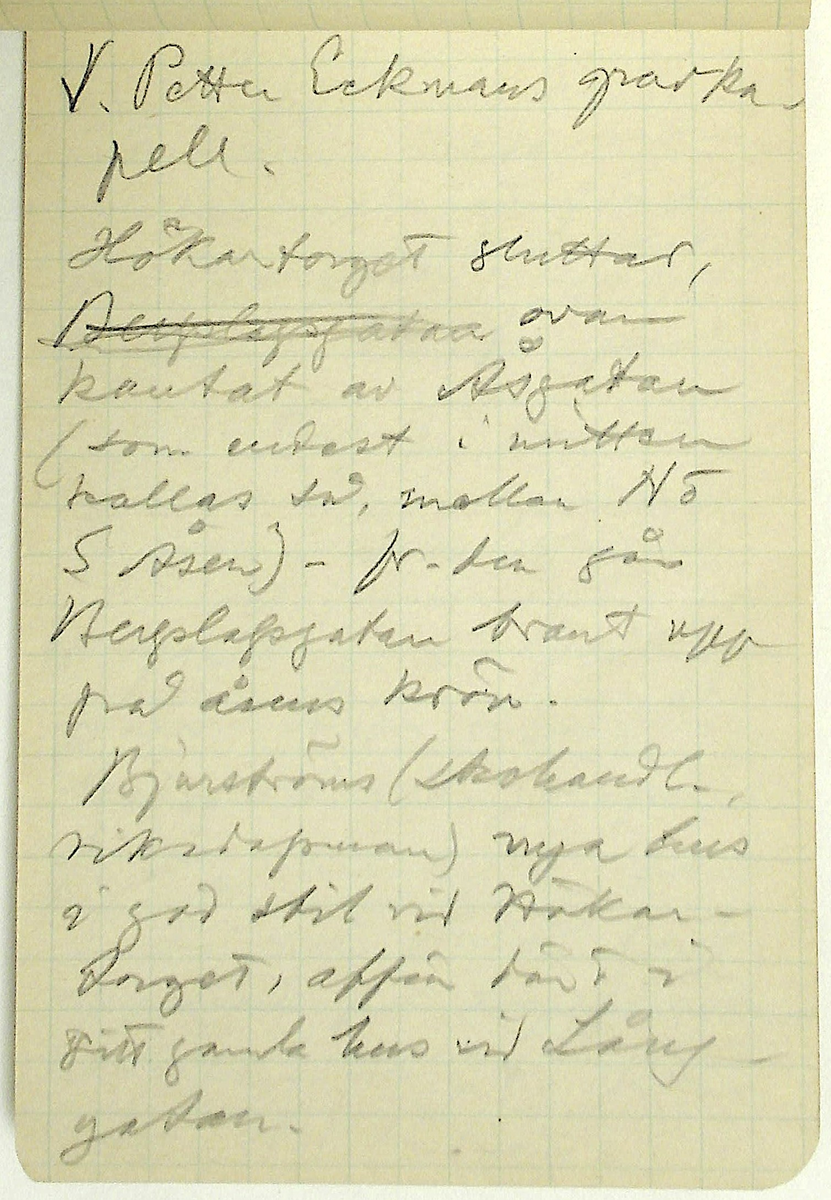 V. Petter Eckmans gravka-
pell.
Hökartorget sluttar,
Bergslagsgatan ovan
kantat av Åsgatan
(som endast i mitten
kallas så, mellan N o
S Åsen) - fr. den går
Bergslagsgatan brant upp
på åsens krön.
Bjurströms (skohandl.,
riksdagsman) nya hus
i god stil vid Hökar-
torget, affär där i
sitt gamla hus vid Lång-
gatan.